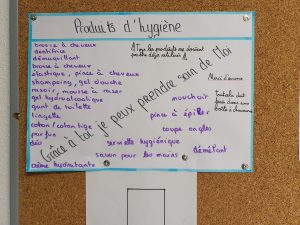 Produits d'hygiène
brosse à cheveux
dentifrice
démaquillant
brosse à cheveux
élastique, pince à cheveux
shampoing, gel douche
rasoir, mousse à raser
gel hydroalcoolique
gant de toilette
lingette
coton / coton tige
parfum
déo
crème hydratante
⚠ Tous les produits ne doivent pas être déjà utilisés
Merci d'avance
mouchoir
pince à épiler
coupe ongles
serviette hygiénique
démêlant
savon pour les mains
dans une
boîte à chaussure
Grâce à toi je peux prendre soin de Moi